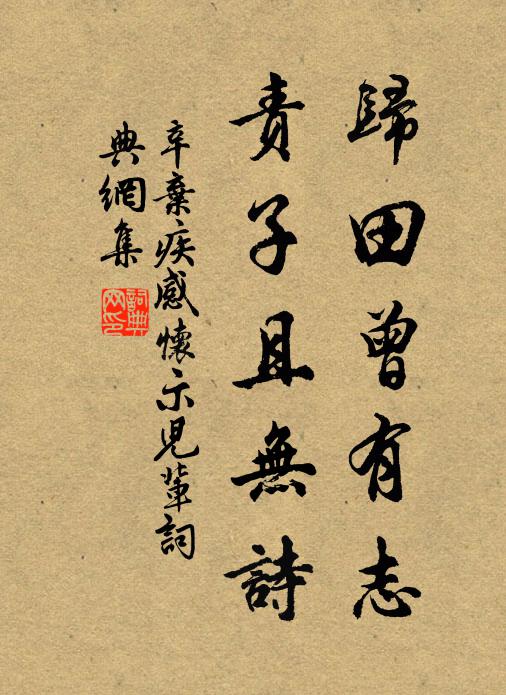 歸田曾有志
責子且無詩
辛棄疾感懷示兒輩詞
典網集
詞典
网印